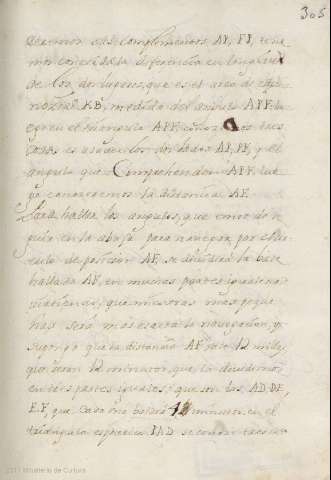 305
daremos sus complementos AP, PF, tene
mos conocida la diferencia en longitud
de los dos lugares, que es el arco de equi
noxial KB, medida del angulo APF lu
ego en el triangulo APF conozco tres
cosas es a saver los dos lados AP, PF, y el
angulo que Comprehenden APF lue
go conoceremos la distancia AF.
Para hallar los angulos, que emos de se
guir en la abuja para navegar por el cir
culo de posicion AF, se dividira la base
hallada AF, en muchas partes iguales no
mientras mas peque
ñas sera mas exacta la navegacion, y
supongo que la distancia AF sale 12 milla
que seran 12 minutos, que la dividimos
en tres partes iguales, que son las AD. DE,
E.F, que Cada una baldra 4 minutos en el
triangulo espherico PAD se conocen tres co
2011 Ministerio de Cultura